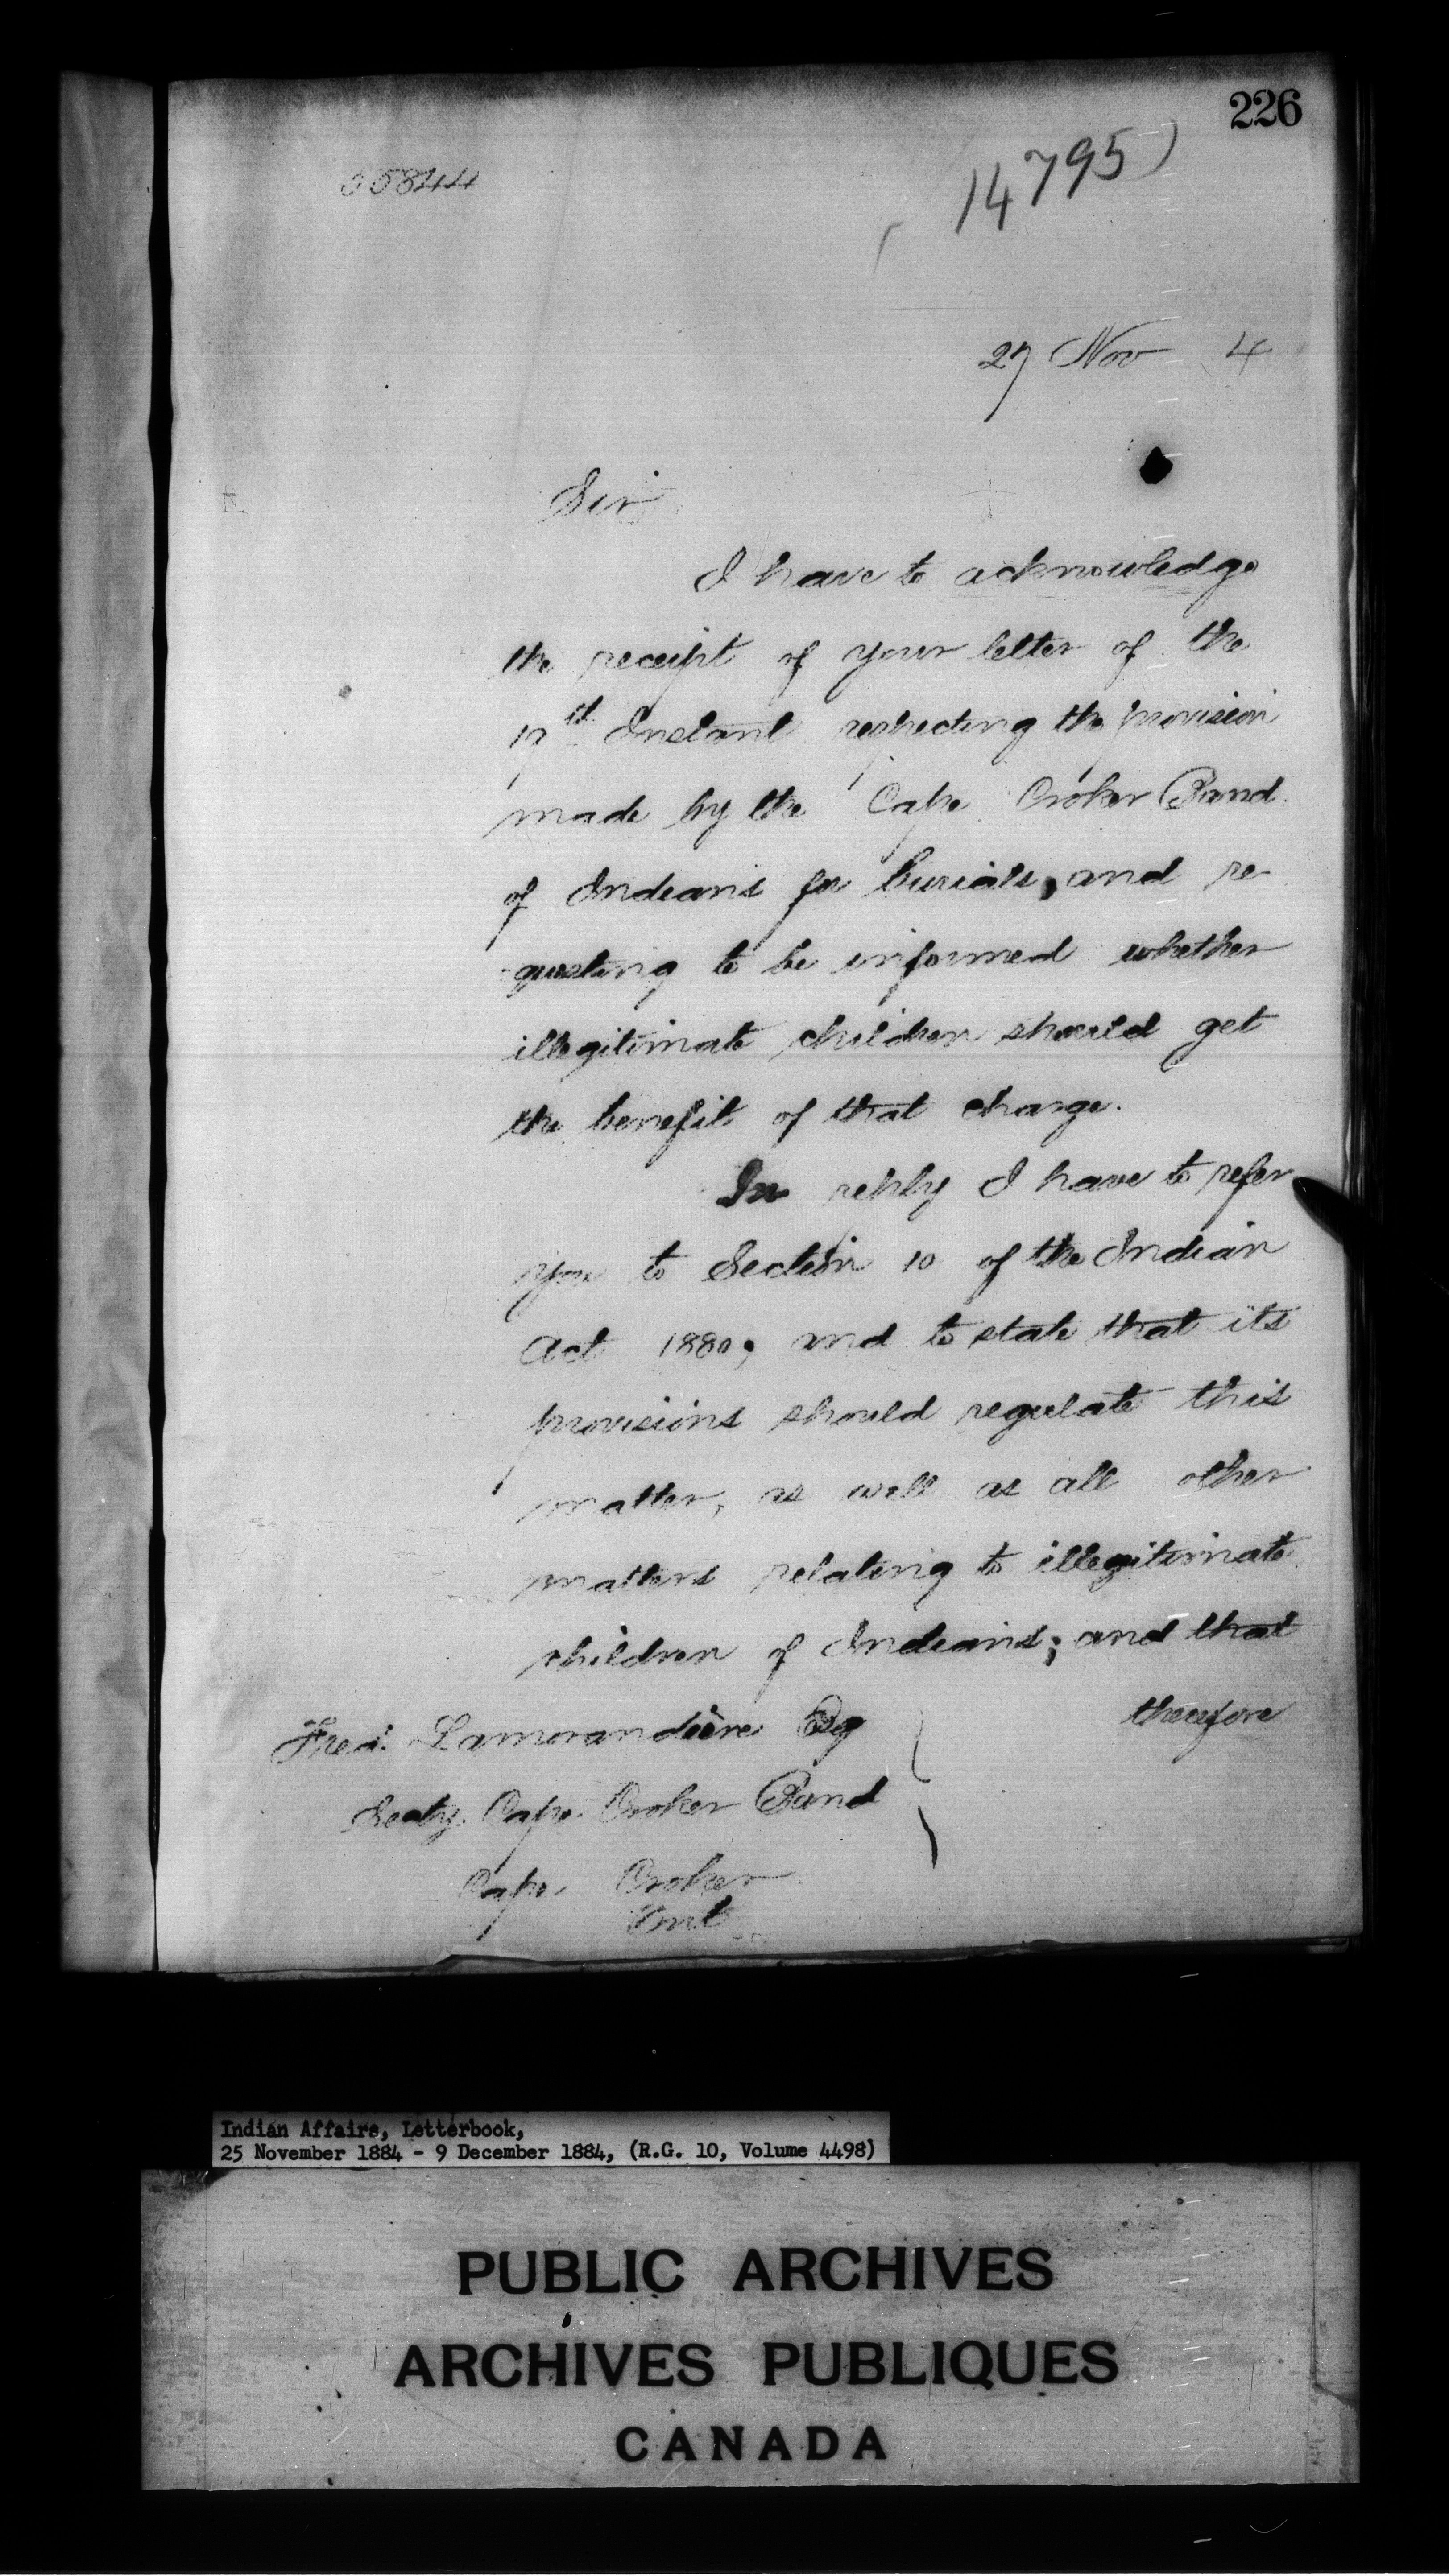 226
55844
14795)
27 Nov 4
Sir,
I have to acknowledge
the receipt of your letter of the
17th Instant respecting the provision
made by the Cape Croker Band
of Indians for burials, and re-
questing to be informed whether
illegitimate children should get
the benefit of that charge.
In reply I have to refer
you to Section 10 of the Indian
Act 1880, and to state that its
provisions should regulate this
matter, as well as all other
matters relating to illegitimate
children of Indians; and that
therefore
Fred. Lamorandière Esq
Secty. Cape Croker Band
Cape Croker
Ont
Indian Affairs, Letterbook,
25 November 1884 - 9 December 1884, (R.G. 10, Volume 4498)
PUBLIC ARCHIVES
ARCHIVES PUBLIQUES
CANADA